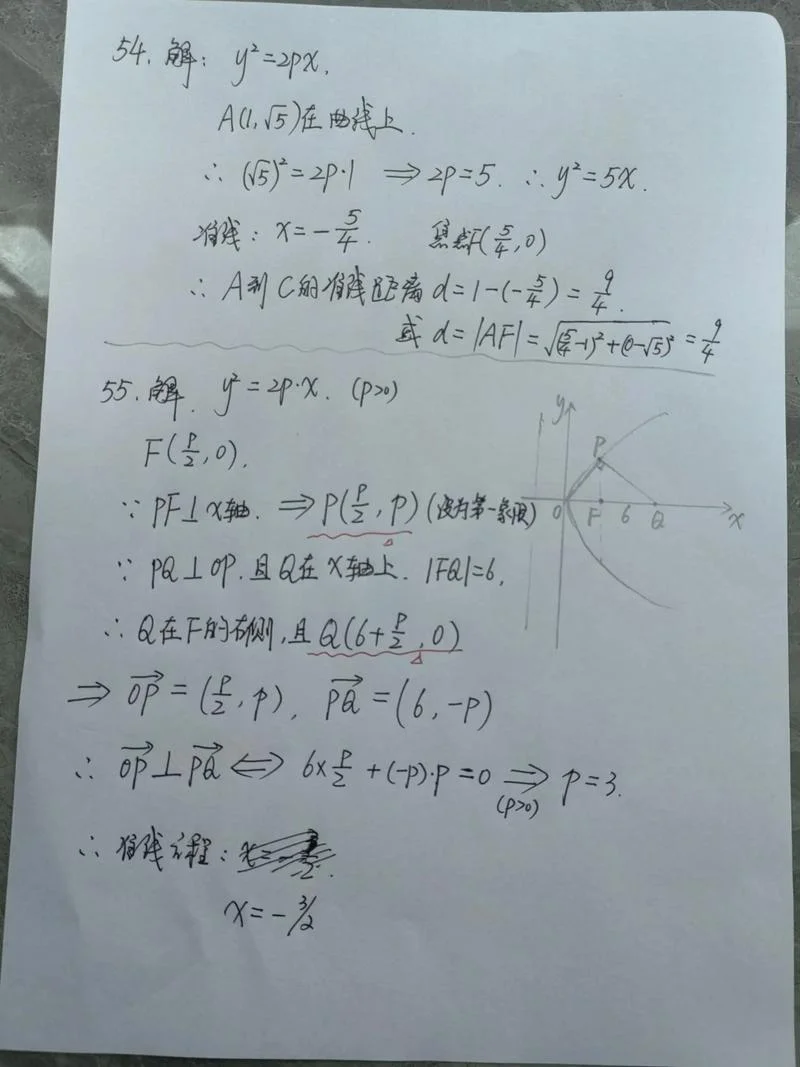 54. 解: y²=2px,
A(1,√5)在曲线上.
∴ (√5)²=2p·1 ⇒ 2p=5. ∴ y²=5x.
准线: x=-5/4. 焦点F(5/4,0)
∴ A到C的准线距离 d=1-(-5/4)=9/4.
或 d=|AF|=√((5/4-1)²+(0-√5)²)=9/4
55. 解. y²=2p·x. (p>0)
F(p/2,0).
∵ PF⊥x轴. ⇒ P(p/2,p) (设为第一象限)
∵ PQ⊥OP. 且Q在x轴上. |FQ|=6,
∴ Q在F的右侧,且Q(6+p/2,0)
⇒ OP→=(p/2,p), PQ→=(6,-p)
∴ OP→⊥PQ→ ⇔ 6×p/2+(-p)·p=0 ⇒ p=3.
(p>0)
∴ 准线方程:
x=-3/2
y
P
O F 6 Q x